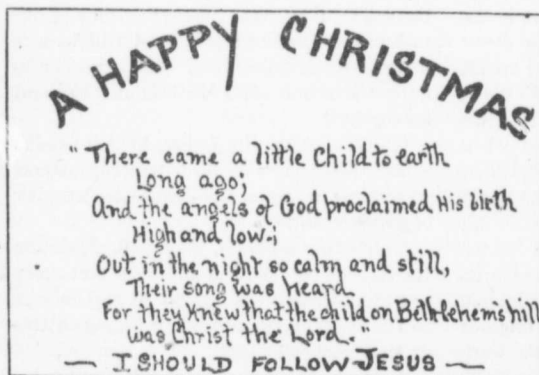 A HAPPY CHRISTMAS
"There came a little Child to earth
Long ago;
And the angels of God proclaimed His birth
High and low.;
Out in the night so calm and still,
Their song was heard
For they knew that the child on Bethlehem's hill
was Christ the Lord."
— I SHOULD FOLLOW JESUS —